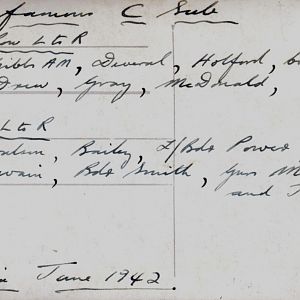 famous C Sub
ow L to R
ibbs AM, Deveral, Holford,
Drew, Gray, McDonald,
L to R
, Bailey, L/Bdr Power
wain, Bdr Smith, Gnrs
and
June 1942.